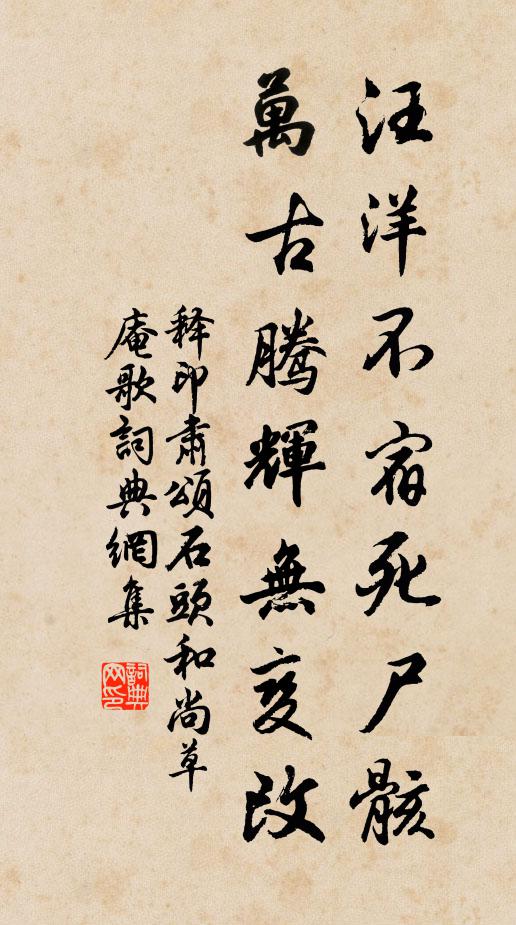 汪洋不宿死尸骸
萬古騰輝無变改
释印肅頌石頭和尚草
庵歌詞典網集
詞典網印